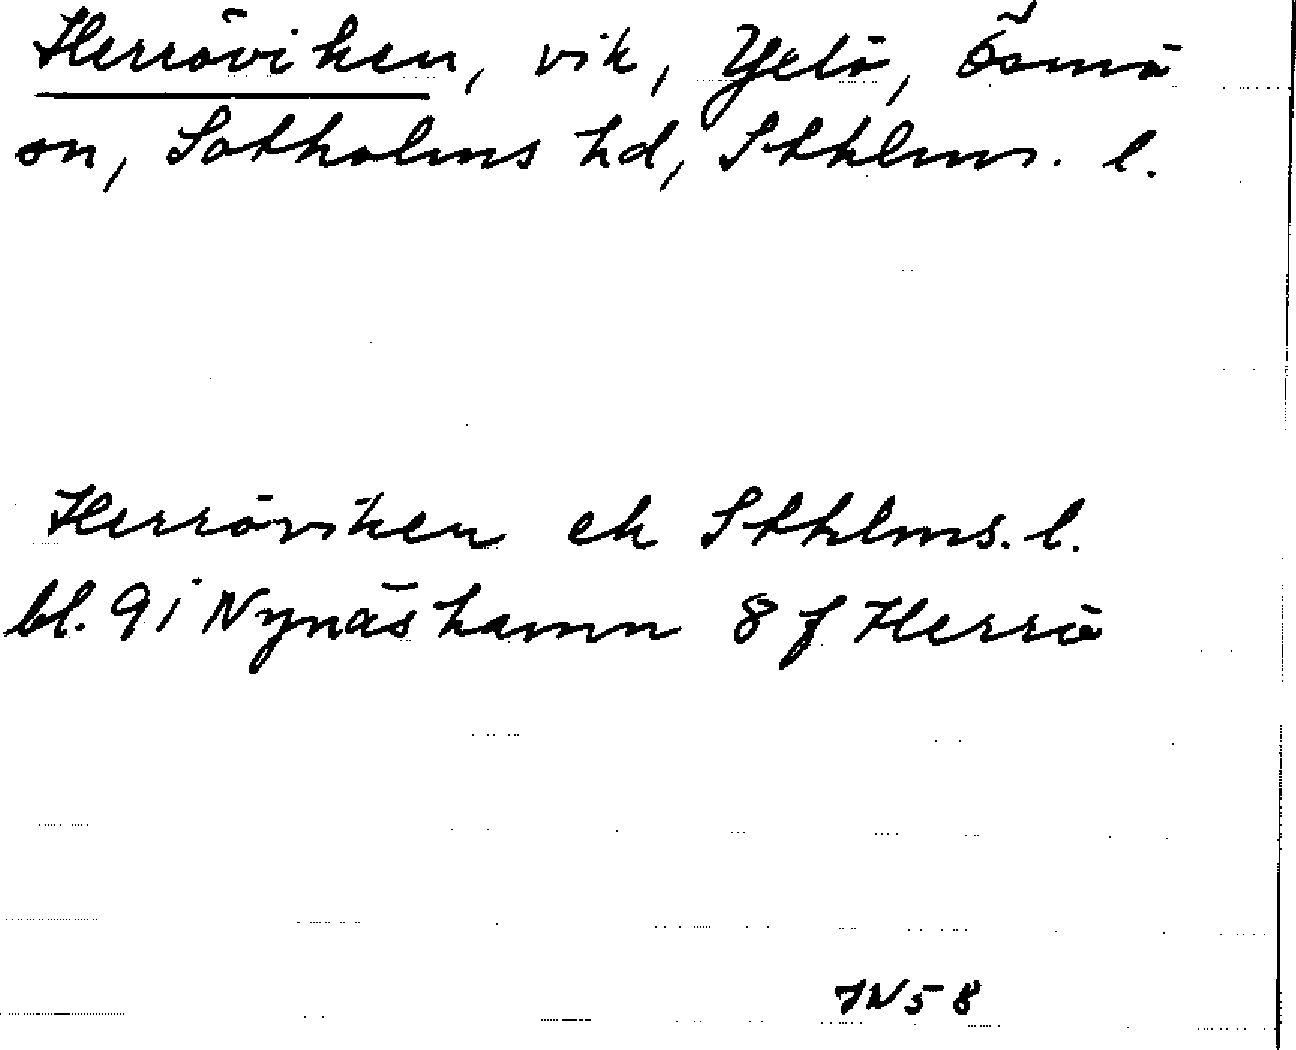 Herröviken, vik, Yxlö, Ösmo
sn, Sotholms hd, Sthlms. l.
Herröviken ek Sthlms. l.
bl. 91 Nynäshamn 8 f Herrö
JN58